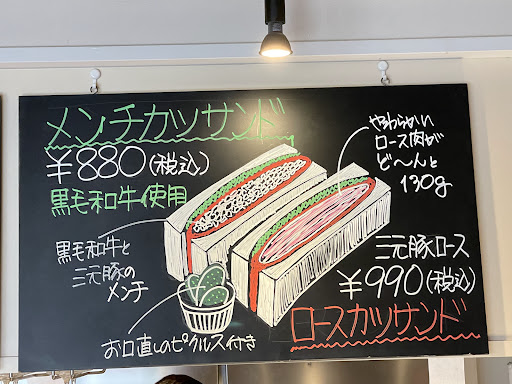 メンチカツサンド
¥880(税込)
黒毛和牛使用
黒毛和牛と
三元豚の
メンチ
お口直しのピクルス付き
やわらかい
ロース肉が
ど〜んと
130g
三元豚ロース
¥990(税込)
ロースカツサンド